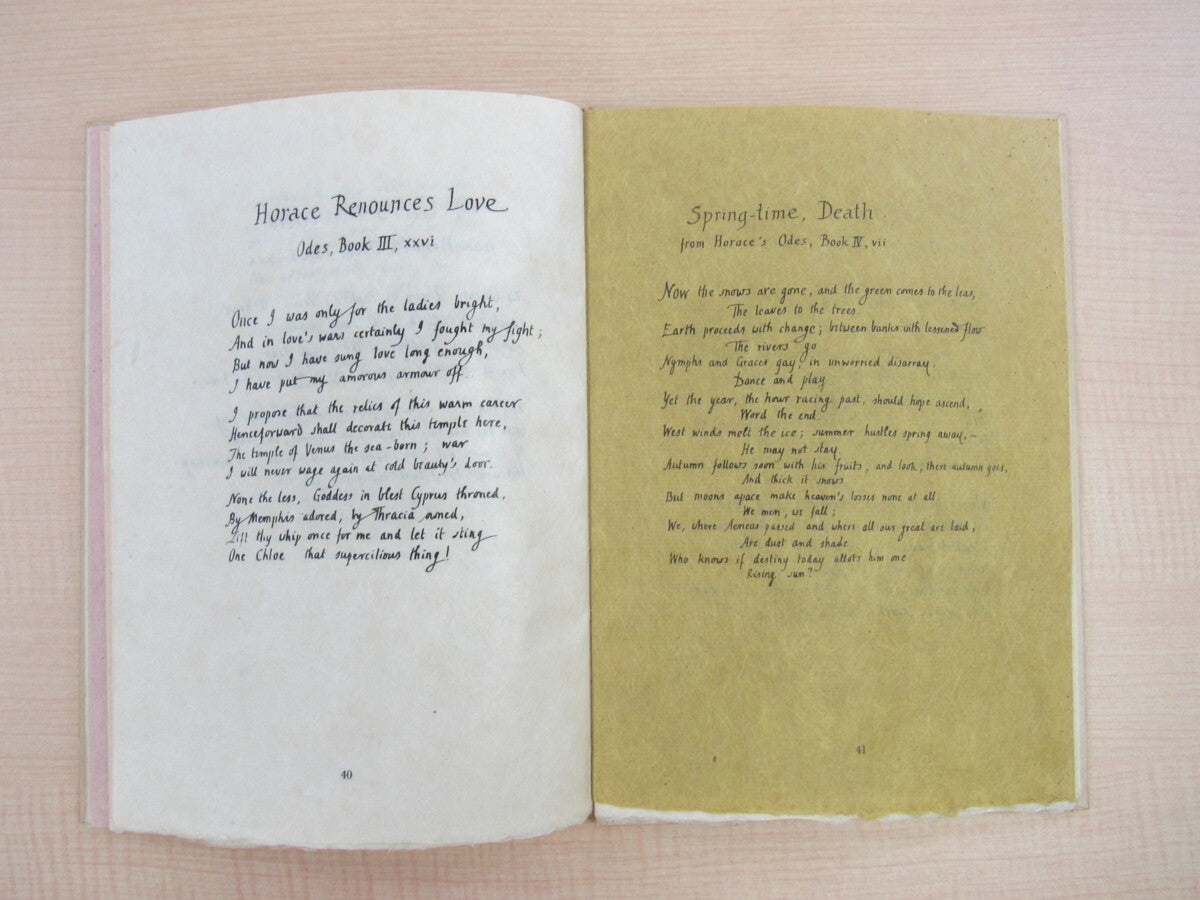 Horace Renounces Love
Odes, Book III, xxvi
Once I was only for the ladies bright,
And in love's wars certainly I fought my fight;
But now I have sung love long enough,
I have put my amorous armour off.
I propose that the relics of this warm career
Henceforward shall decorate this temple here,
The temple of Venus the sea-born; war
I will never wage again at cold beauty's door.
None the less, Goddess in blest Cyprus throned,
By Memphis adored, by Thracia owned,
Lift thy whip once for me and let it sting
One Chloe that supercilious thing!
40
Spring-time, Death
from Horace's Odes, Book IV, vii
Now the snows are gone, and the green comes to the leas,
The leaves to the trees.
Earth proceeds with change; between banks with lessened flow
The rivers go
Nymphs and Graces gay, in unworried disarray.
Dance and play
Yet the year, the hour racing past, should hope ascend,
Word the end.
West winds melt the ice; summer hustles spring away,—
He may not stay
Autumn follows soon with his fruits, and look, there autumn goes,
And thick it snows
But moons apace make heaven's losses none at all.
We men, we fall;
We, where Aeneas passed and where all our great are laid,
Are dust and shade
Who knows if destiny today allots him one
Rising sun?
41